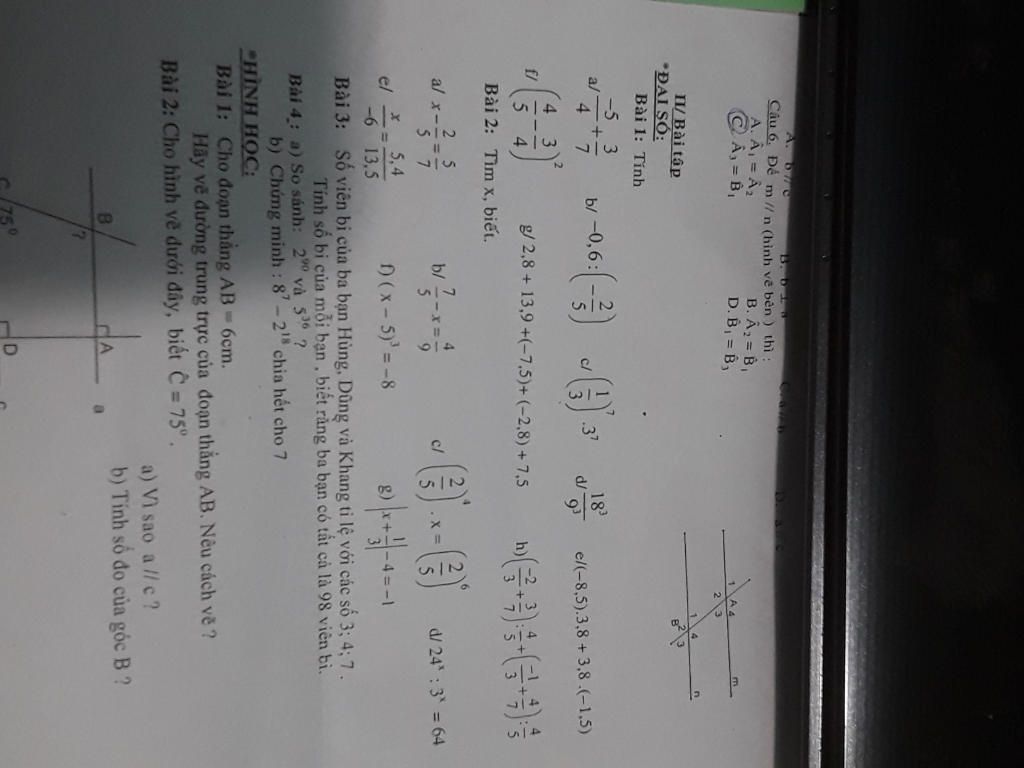 A. b // c B. b ⊥ a
Câu 6. Để m // n (hình vẽ bên ) thì :
A. Â₁ = Â₂ B. Â₂ = B̂₁
C. Â₃ = B̂₁ D. B̂₁ = B̂₃
1 A 4 m
2 3
1 4 n
B 2 3
II/ Bài tập
*ĐẠI SỐ:
Bài 1: Tính
a/ -5/4 + 3/7 b/ −0,6 : (−2/5) c/ (1/3)⁷.3⁷ d/ 18³/9³ e/(−8,5).3,8 + 3,8 .(−1,5)
f/ (4/5 − 3/4)² g/ 2,8 + 13,9 + (−7,5) + (−2,8) + 7,5 h) (−2/3 + 3/7) : 4/5 + (−1/3 + 4/7) : 4/5
Bài 2: Tìm x, biết.
a/ x − 2/5 = 5/7 b/ 7/5 − x = 4/9 c/ (2/5)⁴ . x = (2/5)⁶ d/ 24ˣ : 3ˣ = 64
e/ x/−6 = 5,4/13,5 f) ( x − 5)³ = −8 g) |x + 1/3| − 4 = −1
Bài 3: Số viên bi của ba bạn Hùng, Dũng và Khang tỉ lệ với các số 3; 4; 7 .
Tính số bi của mỗi bạn , biết rằng ba bạn có tất cả là 98 viên bi.
Bài 4 : a) So sánh: 2⁹⁰ và 5³⁶ ?
b) Chứng minh : 8⁷ − 2¹⁸ chia hết cho 7
*HÌNH HỌC:
Bài 1: Cho đoạn thẳng AB = 6cm.
Hãy vẽ đường trung trực của đoạn thẳng AB. Nêu cách vẽ ?
Bài 2: Cho hình vẽ dưới đây, biết Ĉ = 75⁰ .
a) Vì sao a // c ?
b) Tính số đo của góc B ?
B A a
?
C 75⁰ D c